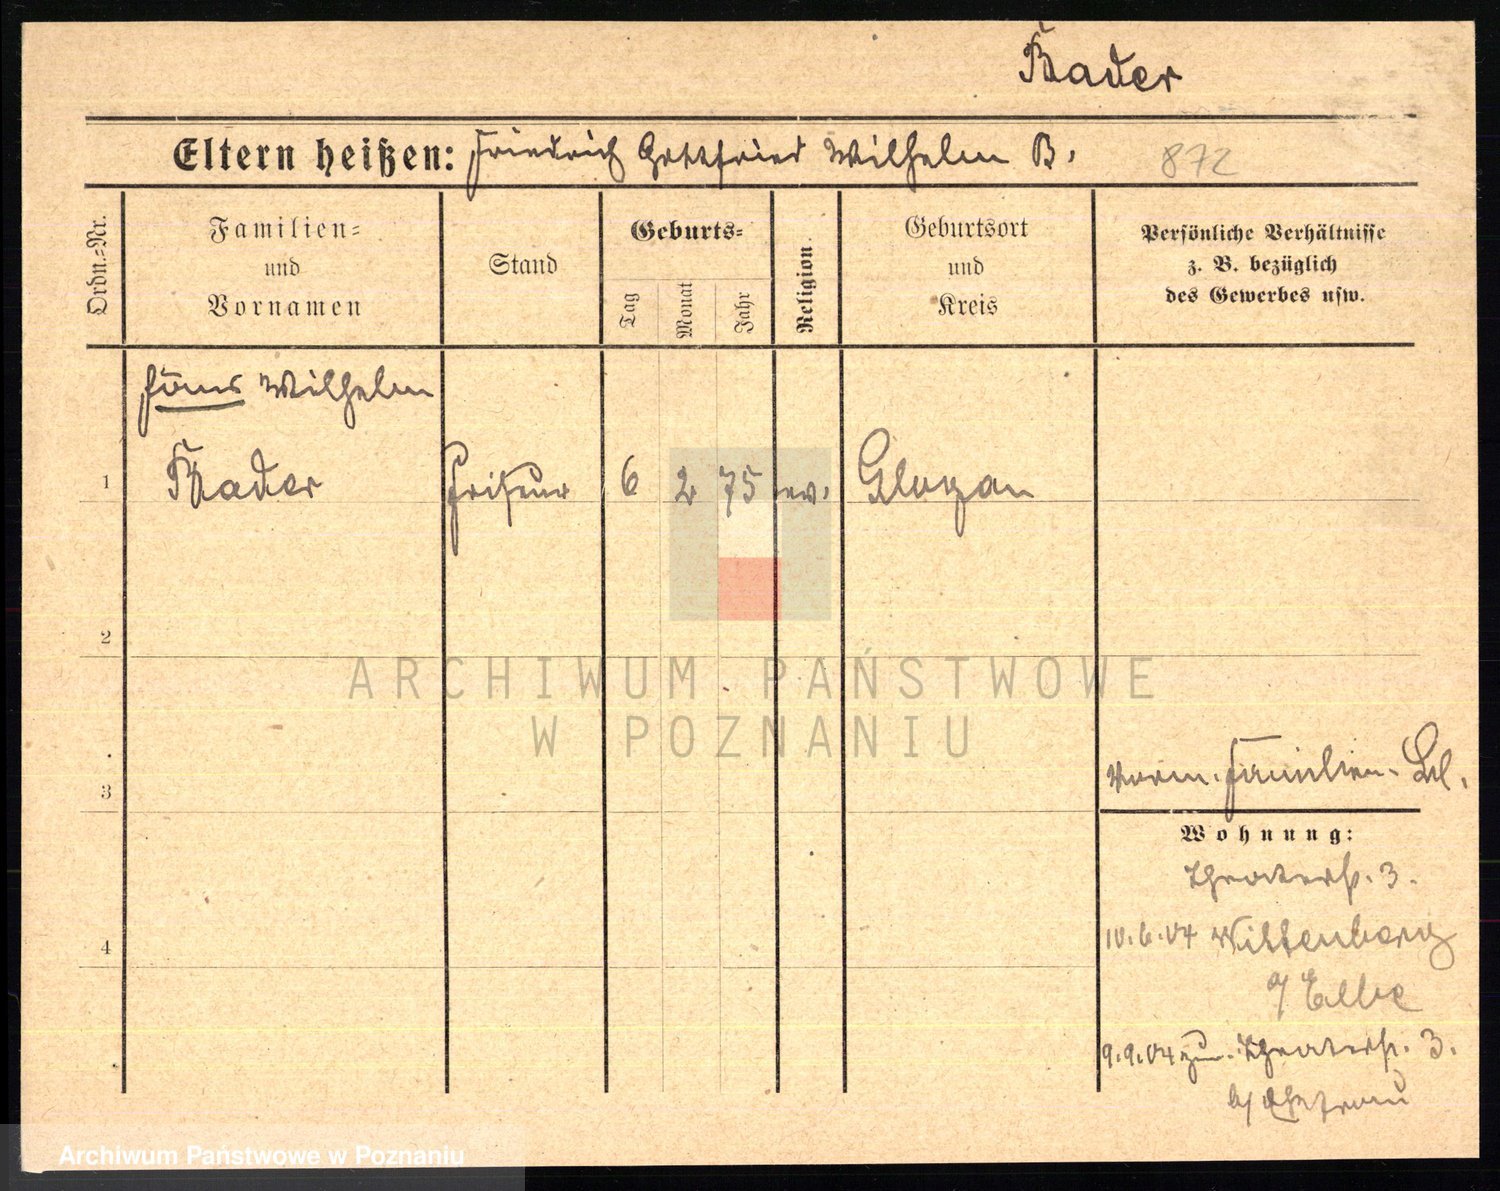 Bader
Eltern heißen: Friedrich Gottfried Wilhelm B.
872
Ordn.-Nr.
Familien-
und
Vornamen
Stand
Geburts-
Tag
Monat
Jahr
Religion
Geburtsort
und
Kreis
Persönliche Verhältnisse
z. B. bezüglich
des Gewerbes usw.
Wilhelm
1 Bader Friseur 6 2 75 ev. Glogau
2
ARCHIWUM PAŃSTWOWE
W POZNANIU
3
Familien-Bl.
Wohnung:
Theaterst. 3.
4
10.6.04 Wittenberg
a/ Elbe
9.9.04 zur. Theaterst. 3.
b/ Ehefrau
Archiwum Państwowe w Poznaniu